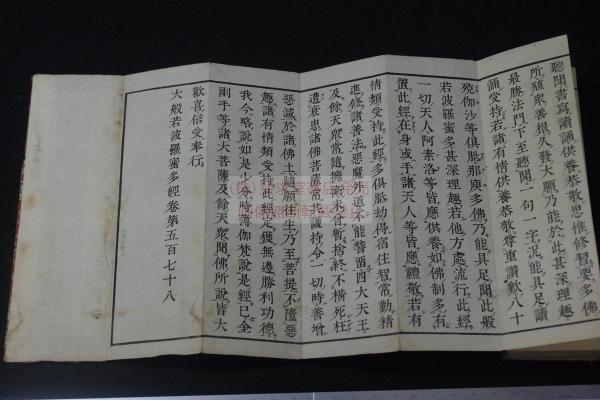 聽聞書寫讀誦供養恭敬思惟修習要多佛
所殖衆善根久發大願乃能於此甚深理趣
最勝法門下至聽聞一句一字況能具足讀
誦受持若諸有情供養恭敬尊重讚歎八十
殑伽沙等俱胝那庾多佛乃能具足聞此般
若波羅蜜多甚深理趣若地方流行此經
一切天人阿素洛等皆應供養如佛制多有
置此經在身或手諸天人等皆應禮敬若有
情類受持此經多俱胝劫得宿住智常勤精
進修諸善法惡魔外道不能稽留四大天王
及餘天衆常隨擁衞未曾暫捨終不橫死枉
遭衰患諸佛菩薩常共護持令一切時善增
惡滅於諸佛土隨願往生乃至菩提不墮惡
趣諸有情類受持此經定獲無邊勝利功德
我今略說如是少分時薄伽梵說是經已金
剛手等諸大菩薩及餘天衆聞佛所說皆大
歡喜信受奉行
大般若波羅蜜多經卷第五百七十八